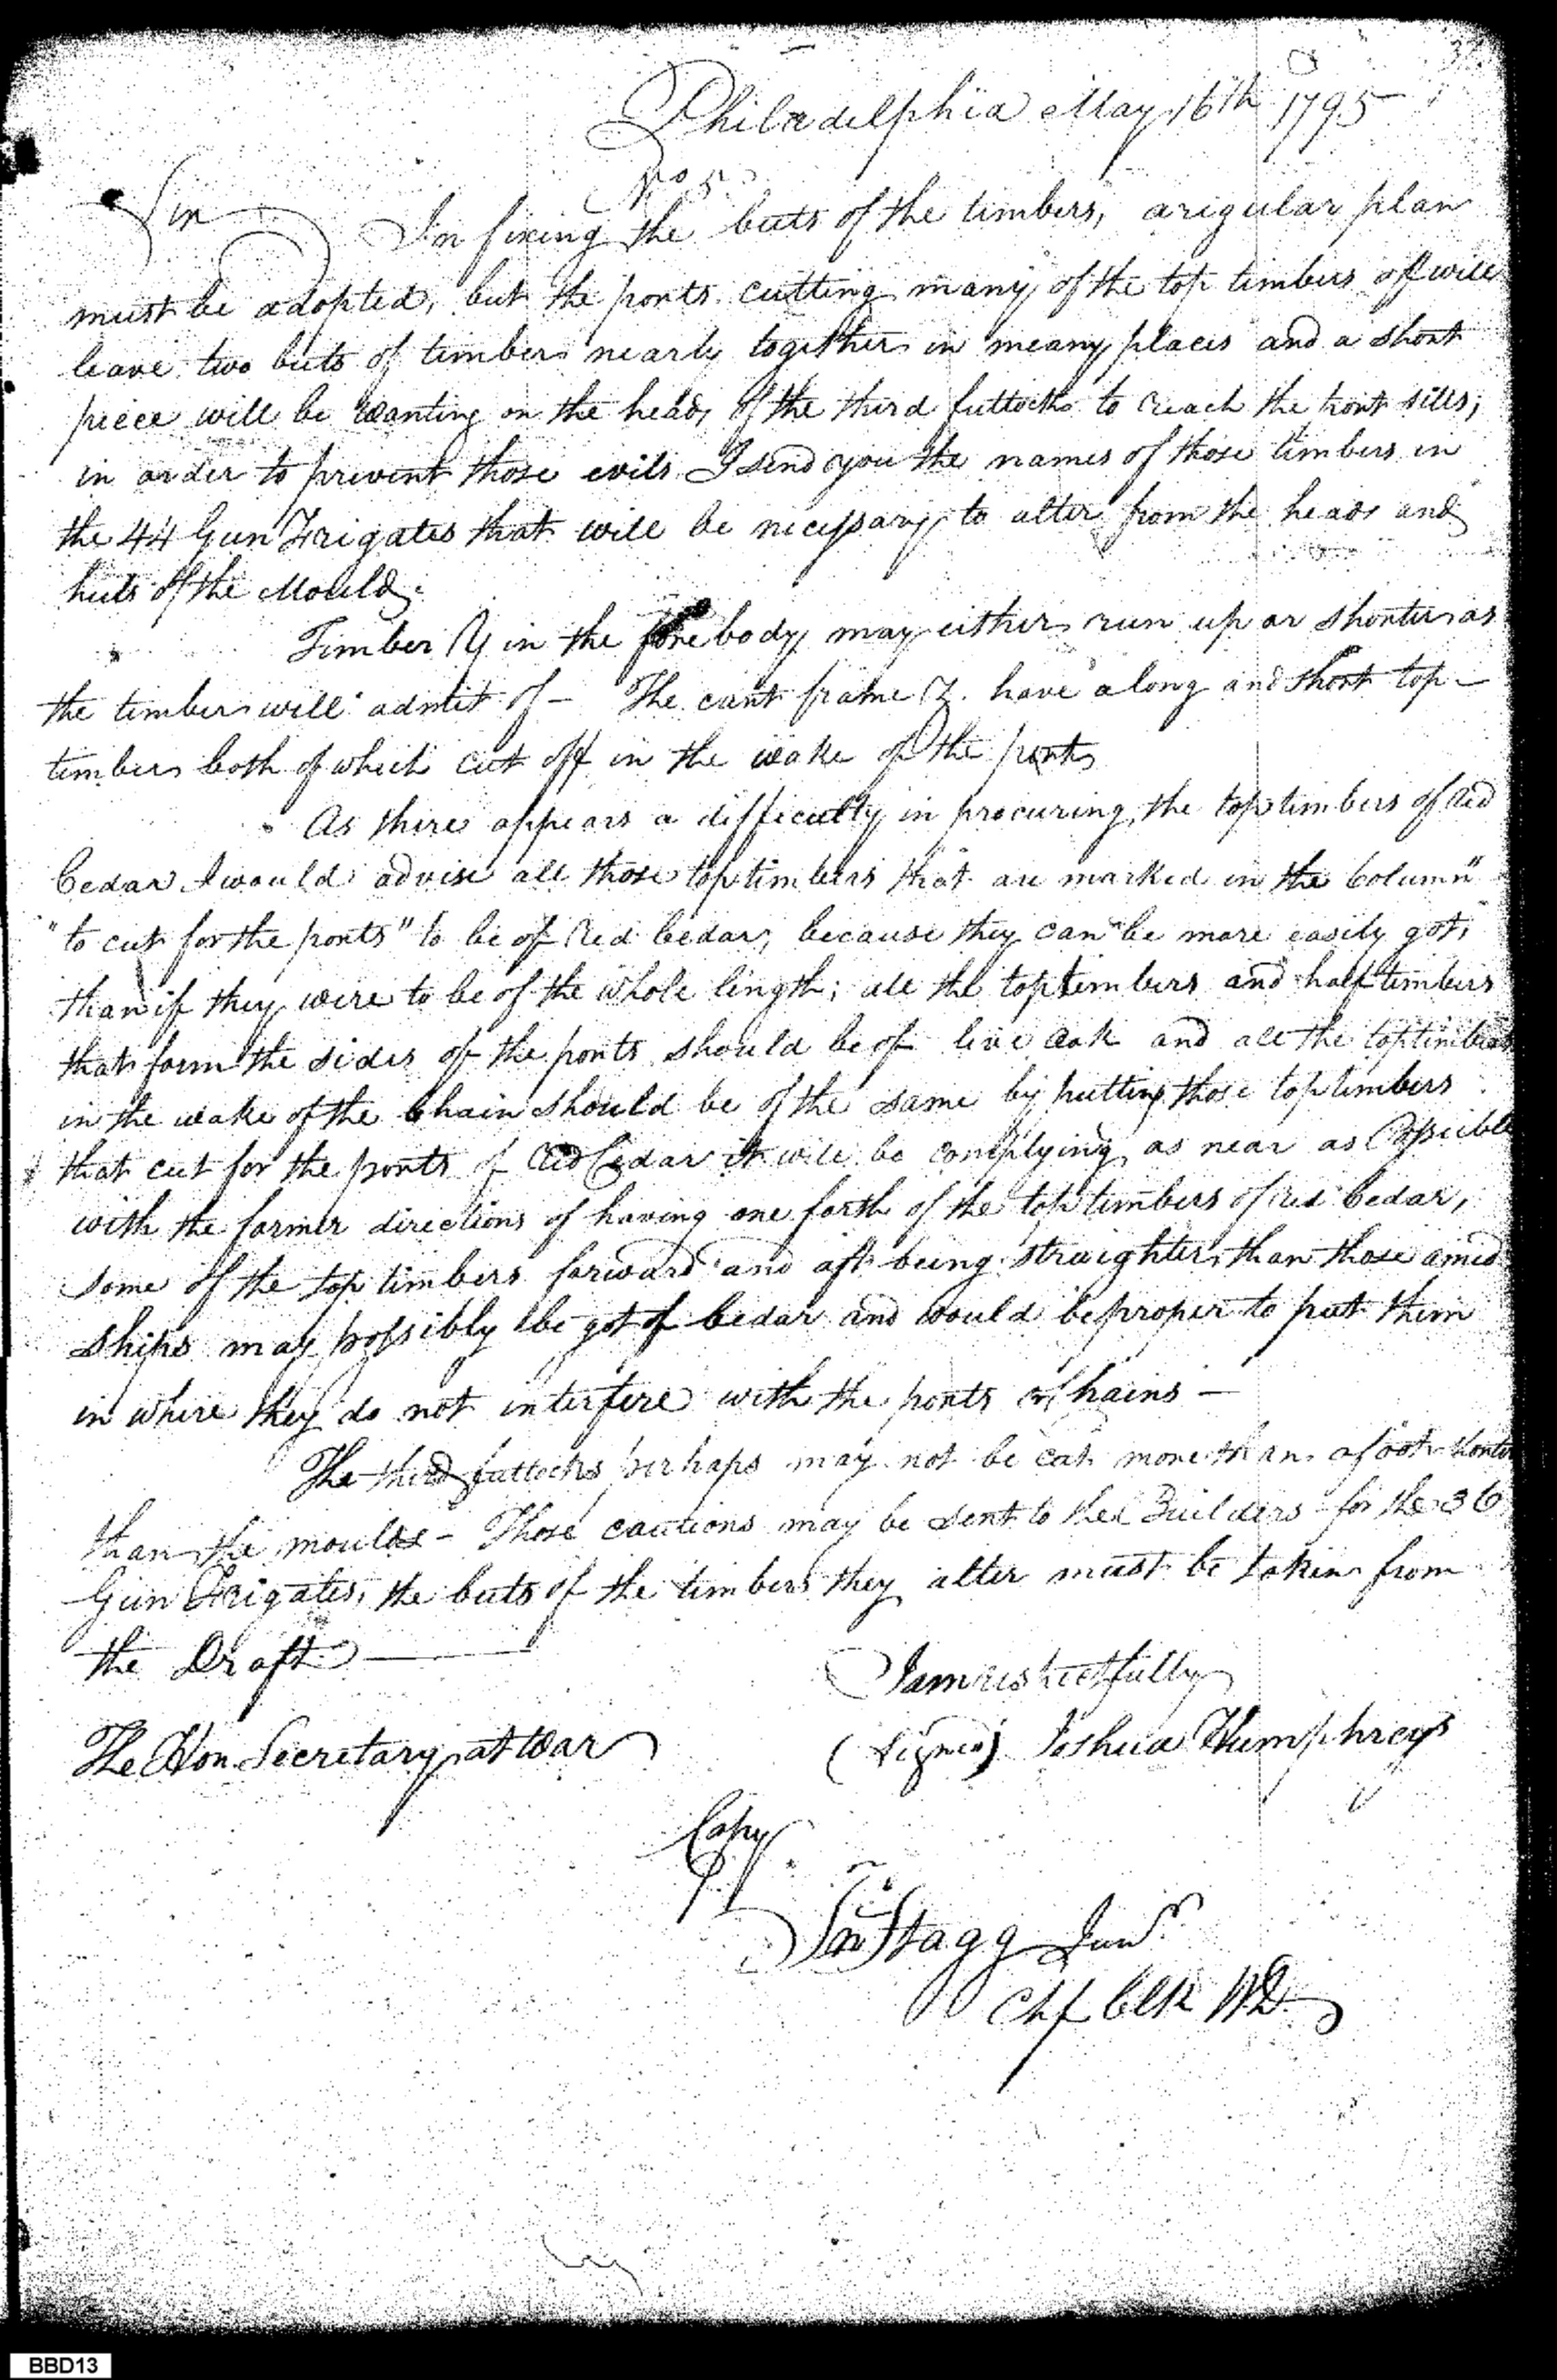 Philadelphia May 16th 1795
No 5
Sir
In fixing the buts of the timbers, a rigular plan
must be adopted, but the ports cutting many of the top timbers off will
leave two buts of timbers nearly together in meany places and a short
piece will be wanting on the heads of the third futtocks to reach the port sills;
in order to prevent those evils I send you the names of those timbers in
the 44 Gun Frigates that will be necessary to alter from the heads and
heels of the Moulds.
Timber Y in the fore body may either run up or shorter as
the timber will admit of - The cant frame Z. have a long and short top-
timbers both of which cut off in the wake of the ports
As there appears a difficulty in procuring the top timbers of Red
Cedar I would advise all those top timbers that are marked in the Column
"to cut for the ports" to be of Red Cedar, because they can be more easily got,
than if they were to be of the whole length; all the top timbers and half timbers
that form the sides of the ports should be of live oak and all the top timbers
in the wake of the Chain should be of the same by putting those top timbers
that cut for the ports of Red Cedar it will be complying as near as Possible
with the former directions of having one forth of the top timbers of red Cedar,
some of the top timbers forward and aft being straighter than those amid
ships may possibly be got of Cedar and would be proper to put them
in where they do not interfere with the ports or Chains -
The third futtocks perhaps may not be cut more than a foot shorter
than the moulds - Those cautions may be sent to the Builders for the 36
Gun Frigates, the buts of the timbers they alter must be taken from
the Draft
I am respectfully
The Hon. Secretary at War
(signed) Joshua Humphreys
Copy
Jn Stagg Junr
Chf Clk WD
BBD13